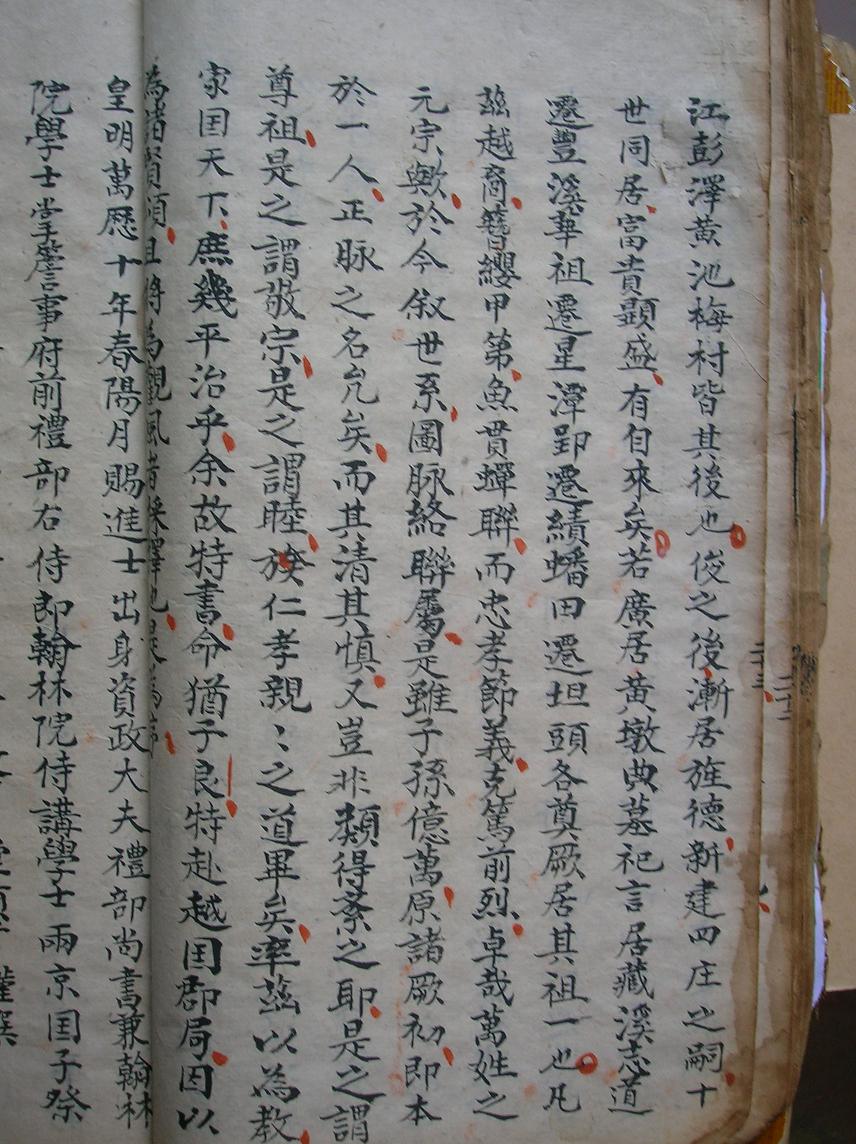 江彭澤黃池梅村皆其後也俊之後漸居旌德新建四庄之嗣十
世同居富貴顯盛有自來矣若廣居黃墩典墓祀言居藏溪志道
遷豐溪華祖遷星潭郢遷績蟠田遷坦頭各奠厥居其祖一也凡
茲越裔簪纓甲第魚貫蟬聯而忠孝節義克篤前烈卓哉萬姓之
元宗歟於今叙世系圖脉絡聯屬是雖子孫億萬原諸厥初即本
於一人正脉之名允矣而其清其慎又豈非纇得紊之耶是之謂
尊祖是之謂敬宗是之謂睦族仁孝親〻之道畢矣率茲以為教
家国天下庶幾平治乎余故特書命猶子良特赴越国郡局因以
為諸賢頌且將為觀風者採擇也是為序
皇明萬歷十年春陽月賜進士出身資政大夫禮部尚書兼翰林
院學士掌詹事府前禮部右侍郎翰林院侍講學士兩京国子祭
二十三
二十二